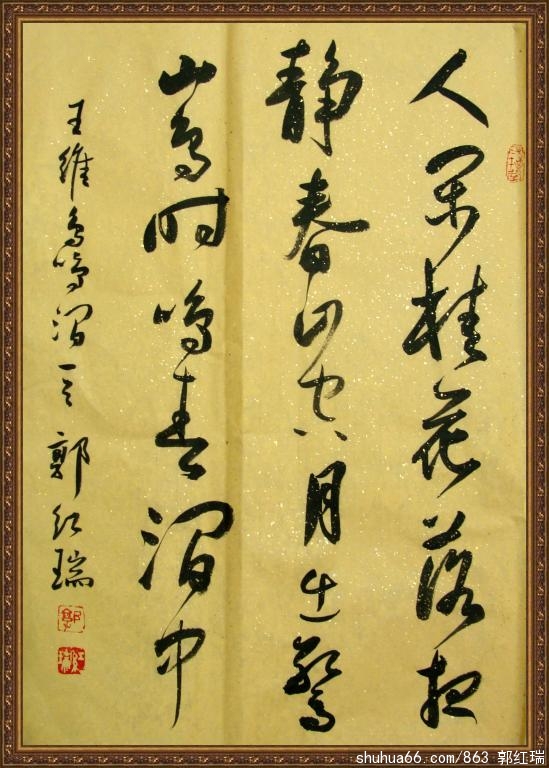 人闲桂花落夜
静春山空月出驚
山鸟时鸣春涧中
王維鸟鸣涧 郭红瑞
shuhua66.com/863 郭红瑞